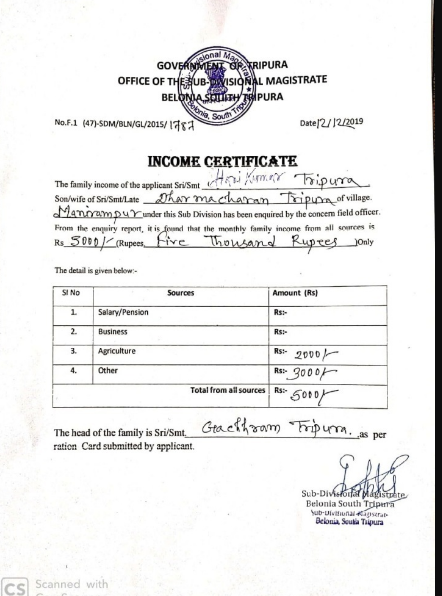 GOVERNMENT OF TRIPURA
OFFICE OF THE SUB-DIVISIONAL MAGISTRATE
BELONIA SOUTH TRIPURA
No.F.1 (47)-SDM/BLN/GL/2015/ 1787 Date 12/12/2019
INCOME CERTIFICATE
The family income of the applicant Sri/Smt Hari Kumar Tripura
Son/wife of Sri/Smt/Late Dharmacharan Tripura of village.
Manirampur under this Sub Division has been enquired by the concern field officer.
From the enquiry report, it is found that the monthly family income from all sources is
Rs 5000/- (Rupees, Five Thousand Rupees )Only
The detail is given below:-
Sl No Sources Amount (Rs)
1. Salary/Pension Rs:-
2. Business Rs:-
3. Agriculture Rs:- 2000/-
4. Other Rs:- 3000/-
Total from all sources Rs:- 5000/-
The head of the family is Sri/Smt, Tripura. ,as per
ration Card submitted by applicant.
Sub-Divisional Magistrate
Belonia South Tripura
Sub-Divisional Magistrate
Belonia, South Tripura
CS Scanned with